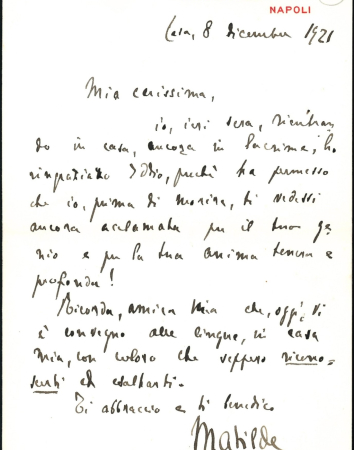 NAPOLI
Casa, 8 dicembre 1921
Mia carissima,
io, ieri sera, rientran
do in casa, ancora in lacrime, ho
ringraziato Iddio, perchè ha permesso
che io, prima di morire, ti vedessi
ancora acclamata per il tuo ge
nio e per la tua anima tenera e
profonda!
Ricorda, amica mia che, oggi, vi
è convegno alle cinque, in casa
mia, con coloro che seppero ricono-
scerti ed esaltarti.
Ti abbraccio e ti benedico
Matilde